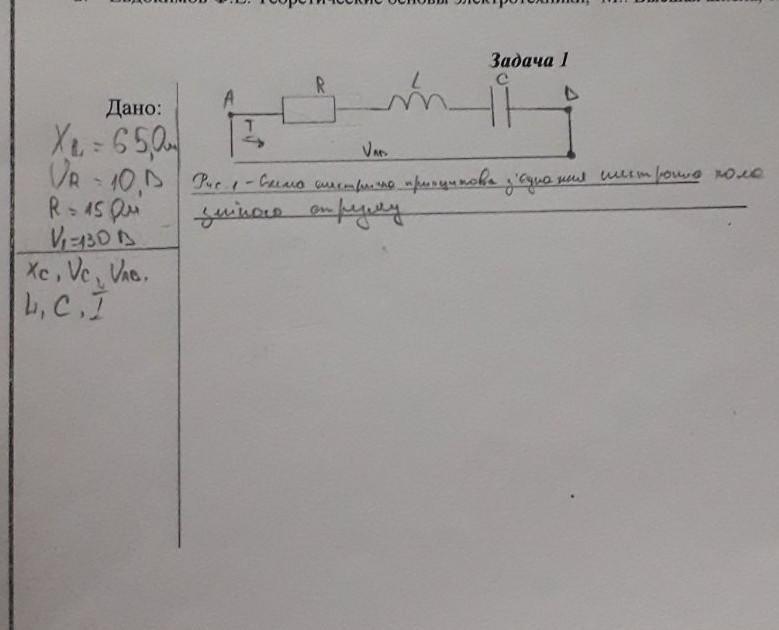 Евдокимов Ф.Е. Теоретические основы электротехники, М.: Высшая школа,
Задача 1
Дано:
X_L = 65,Ом
U_R = 10,В
R = 15 Ом
U_1=130 В
Xc, Uc, U_AB.
L, C, I
A R L C B
I
U_AB
Рис. 1 - Схема електрична принципова з'єднання электричного кола
змінного струму